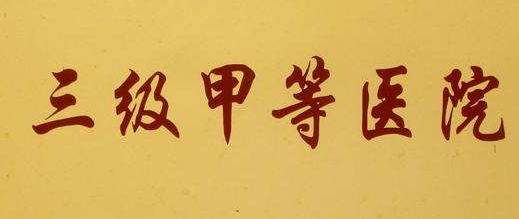 三级甲等医院